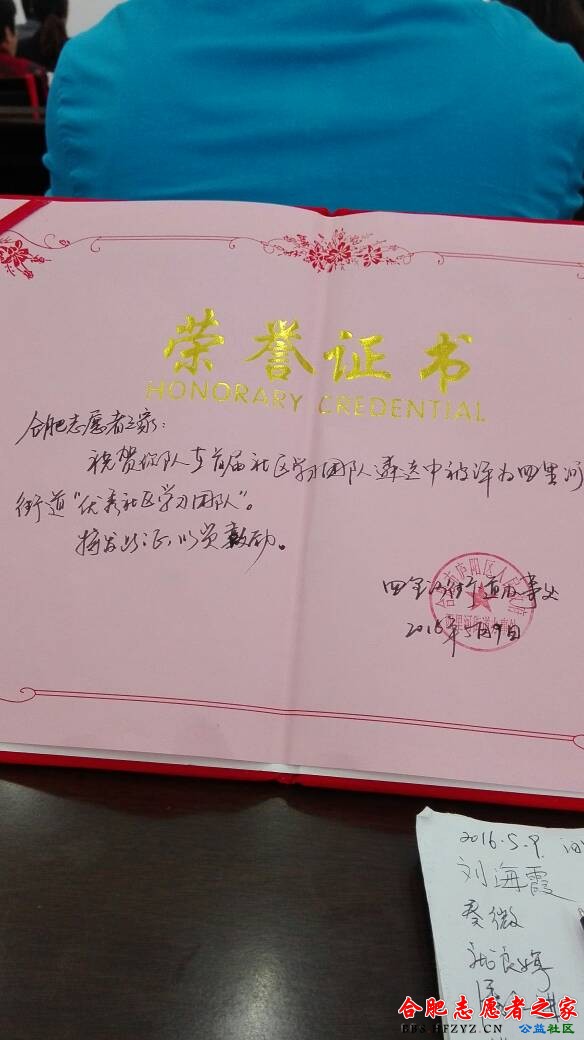 荣誉证书
HONORARY CREDENTIAL
合肥志愿者之家：
祝贺你队在首届社区学习团队遴选中被评为四里河
街道“优秀社区学习团队”。
特发此证，以资鼓励。
四里河街道办事处
2016年5月9日
合肥市庐阳区人民政府
四里河街道办事处
2016.5.9.
刘海霞
葵微
合肥志愿者之家
BBS.HFZYZ.CN 公益社区